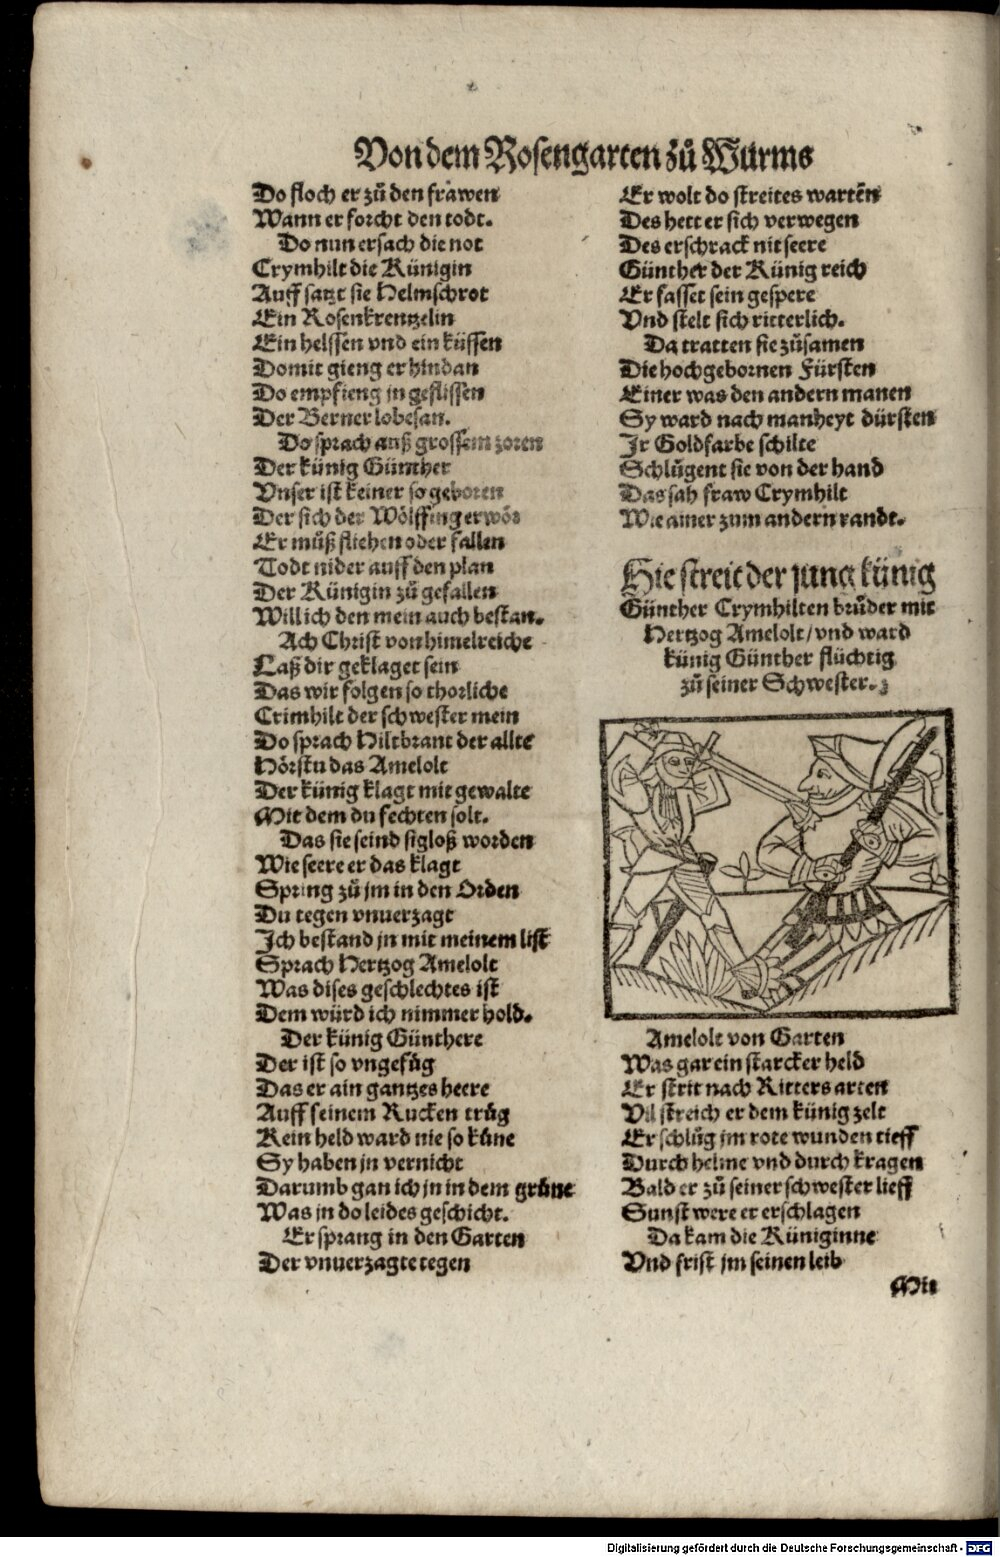 Von dem Rosengarten zů Wurms
Do floch er zů den frawen
Wann er forcht den todt.
Do nun ersach die not
Crymhilt die Künigin
Auff satzt sie Helmschrot
Ein Rosenkrentzelin
Ein helssen vnd ein küssen
Domit gieng er hindan
Do empfieng jn geflissen
Der Berner lobesan.
Do sprach auß grossem zoren
Der künig Günther
Vnser ist keiner so geboren
Der sich der Wölffing erwör
Er můß fliehen oder fallen
Todt nider auff den plan
Der Künigin zů gefallen
Will ich den mein auch bestan.
Ach Christ von himelreiche
Laß dir geklaget sein
Das wir folgen so thorliche
Crimhilt der schwester mein
Do sprach Hiltbrant der allte
Hörstu das Amelolt
Der künig klagt mit gewalte
Mit dem du fechten solt.
Das sie seind sigloß worden
Wie seere er das klagt
Spring zů jm in den Orden
Du tegen vnuerzagt
Ich bestand jn mit meinem list
Sprach Hertzog Amelolt
Was dises geschlechtes ist
Dem würd ich nimmer hold.
Der künig Günthere
Der ist so vngefůg
Das er ain gantzes heere
Auff seinem Rucken trůg
Kein held ward nie so kůne
Sy haben jn vernicht
Darumb gan ich jn in dem grůne
Was jn do leides geschicht.
Er sprang in den Garten
Der vnuerzagte tegen
Er wolt do streites wartēn
Des hett er sich verwegen
Des erschrack nit seere
Günther der Künig reich
Er fasset sein gespere
Vnd stelt sich ritterlich.
Da tratten sie zůsamen
Die hochgebornen Fürsten
Einer was den andern manen
Sy ward nach manheyt dürsten
Jr Goldfarbe schilte
Schlůgent sie von der hand
Das sah fraw Crymhilt
Wie ainer zum andern randt.
Hie streit der jung künig
Günther Crymhilten brůder mit
Hertzog Amelolt/ vnd ward
künig Günther flüchtig
zů seiner Schwester.
Amelolt von Garten
Was gar ein starcker held
Er strit nach Ritters arten
Vil streich er dem künig zelt
Er schlůg jm rote wunden tieff
Durch helme vnd durch kragen
Bald er zů seiner schwester lieff
Sunst were er erschlagen
Da kam die Küniginne
Vnd frist jm seinen leib
Mit
Digitalisierung gefördert durch die Deutsche Forschungsgemeinschaft - DFG